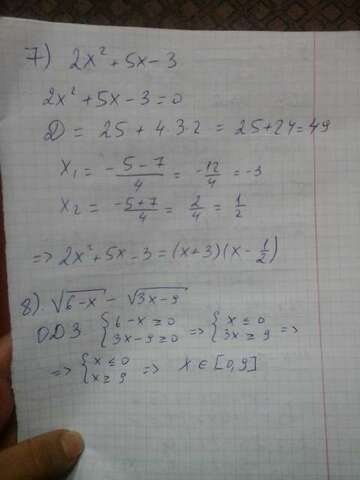 7) 2x² + 5x - 3
2x² + 5x - 3 = 0
D = 25 + 4·3·2 = 25 + 24 = 49
x₁ = (-5-7)/4 = -12/4 = -3
x₂ = (-5+7)/4 = 2/4 = 1/2
=> 2x² + 5x - 3 = (x+3)(x - 1/2)
8). √(6-x) - √(3x-9)
ОДЗ {6-x ≥ 0; 3x-9 ≥ 0 => {x ≤ 0; 3x ≥ 9 =>
=> {x ≤ 0; x ≥ 9 => x ∈ [0,9]